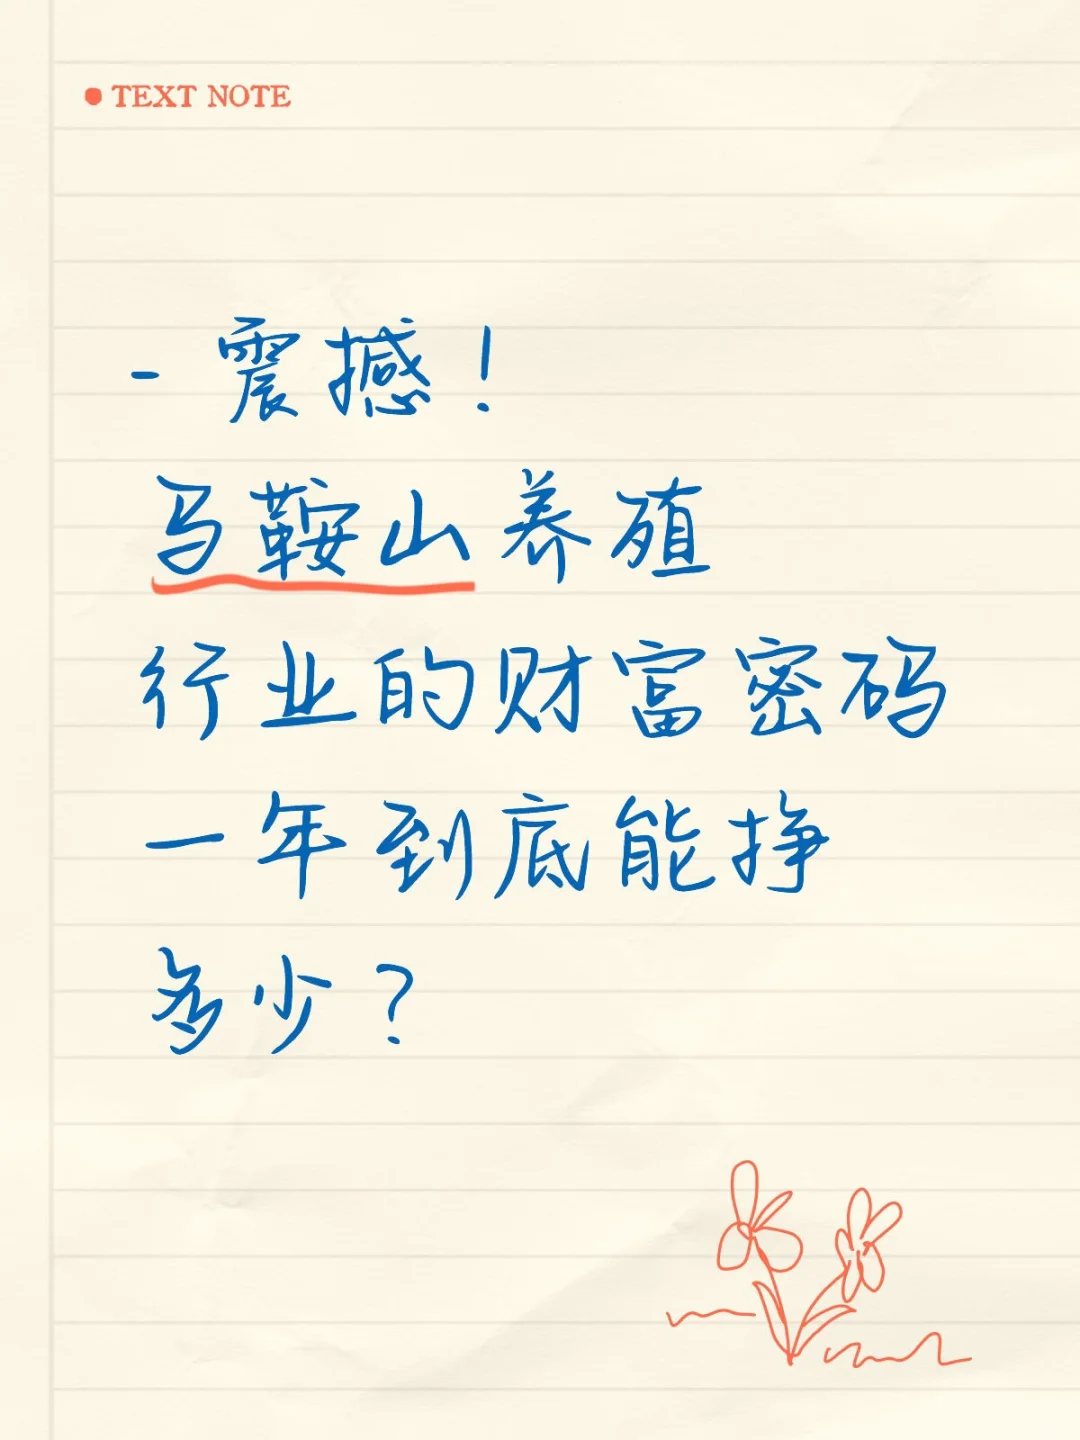 TEXT NOTE
- 震撼！
马鞍山养殖
行业的财富密码
一年到底能挣
多少？